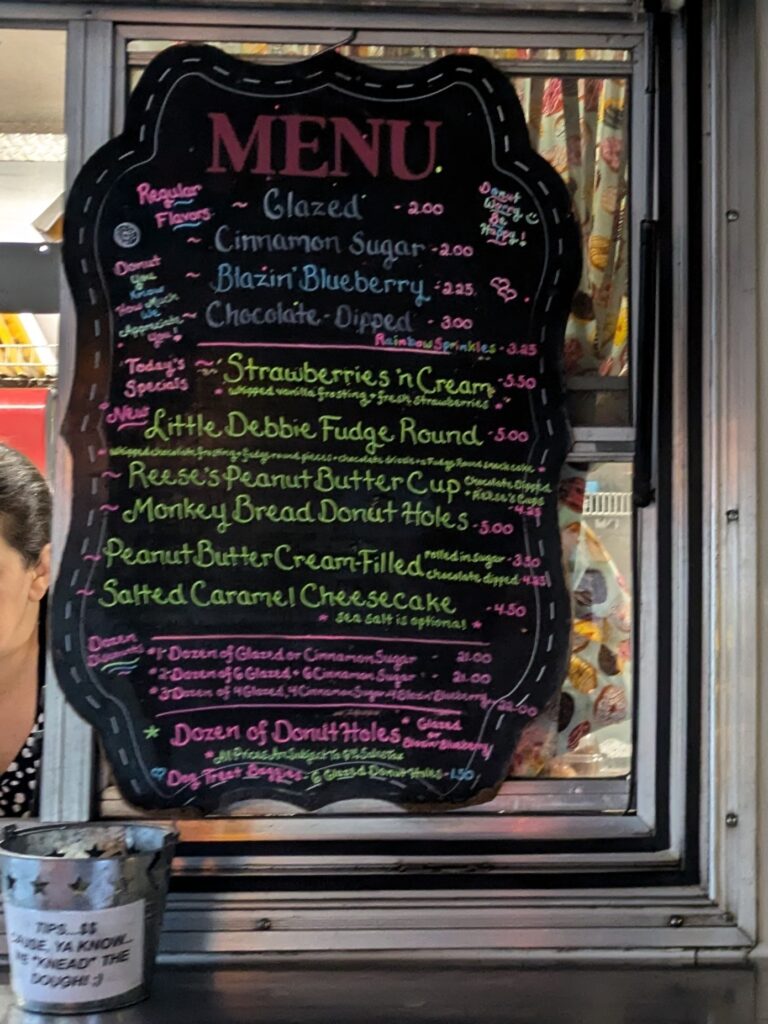 MENU
Regular
Flavors
~ Glazed - 2.00
Donut
Worry
Be
Happy!
~ Cinnamon Sugar - 2.00
~ Blazin' Blueberry - 2.25
~ Chocolate-Dipped - 3.00
Rainbow Sprinkles - 3.25
Donut
You
Know
How Much
We
Appreciate
You!
Today's
Specials
~ Strawberries 'n Cream - 5.50
whipped vanilla frosting + fresh strawberries
New
Little Debbie Fudge Round - 5.00
whipped chocolate frosting + fudge round pieces + chocolate drizzle + a Fudge Round snack cake
~ Reese's Peanut Butter Cup Chocolate Dipped
+ Reese's Cups
- 4.25
~ Monkey Bread Donut Holes - 5.00
~ Peanut Butter Cream-Filled rolled in sugar - 3.50
chocolate dipped - 4.25
~ Salted Caramel Cheesecake - 4.50
* sea salt is optional *
Dozen
Discounts
*1- Dozen of Glazed or Cinnamon Sugar - 21.00
*2- Dozen of 6 Glazed + 6 Cinnamon Sugar - 21.00
*3- Dozen of 4 Glazed, 4 Cinnamon Sugar, 4 Blazin' Blueberry - 22.00
* Dozen of Donut Holes * Glazed
or
Blazin' Blueberry
* All Prices Are Subject To 6% Sales Tax
Dog Treat Baggies - 6 Glazed Donut Holes - 1.50
TIPS...$$
CAUSE, YA KNOW...
WE "KNEAD" THE
DOUGH! ;)